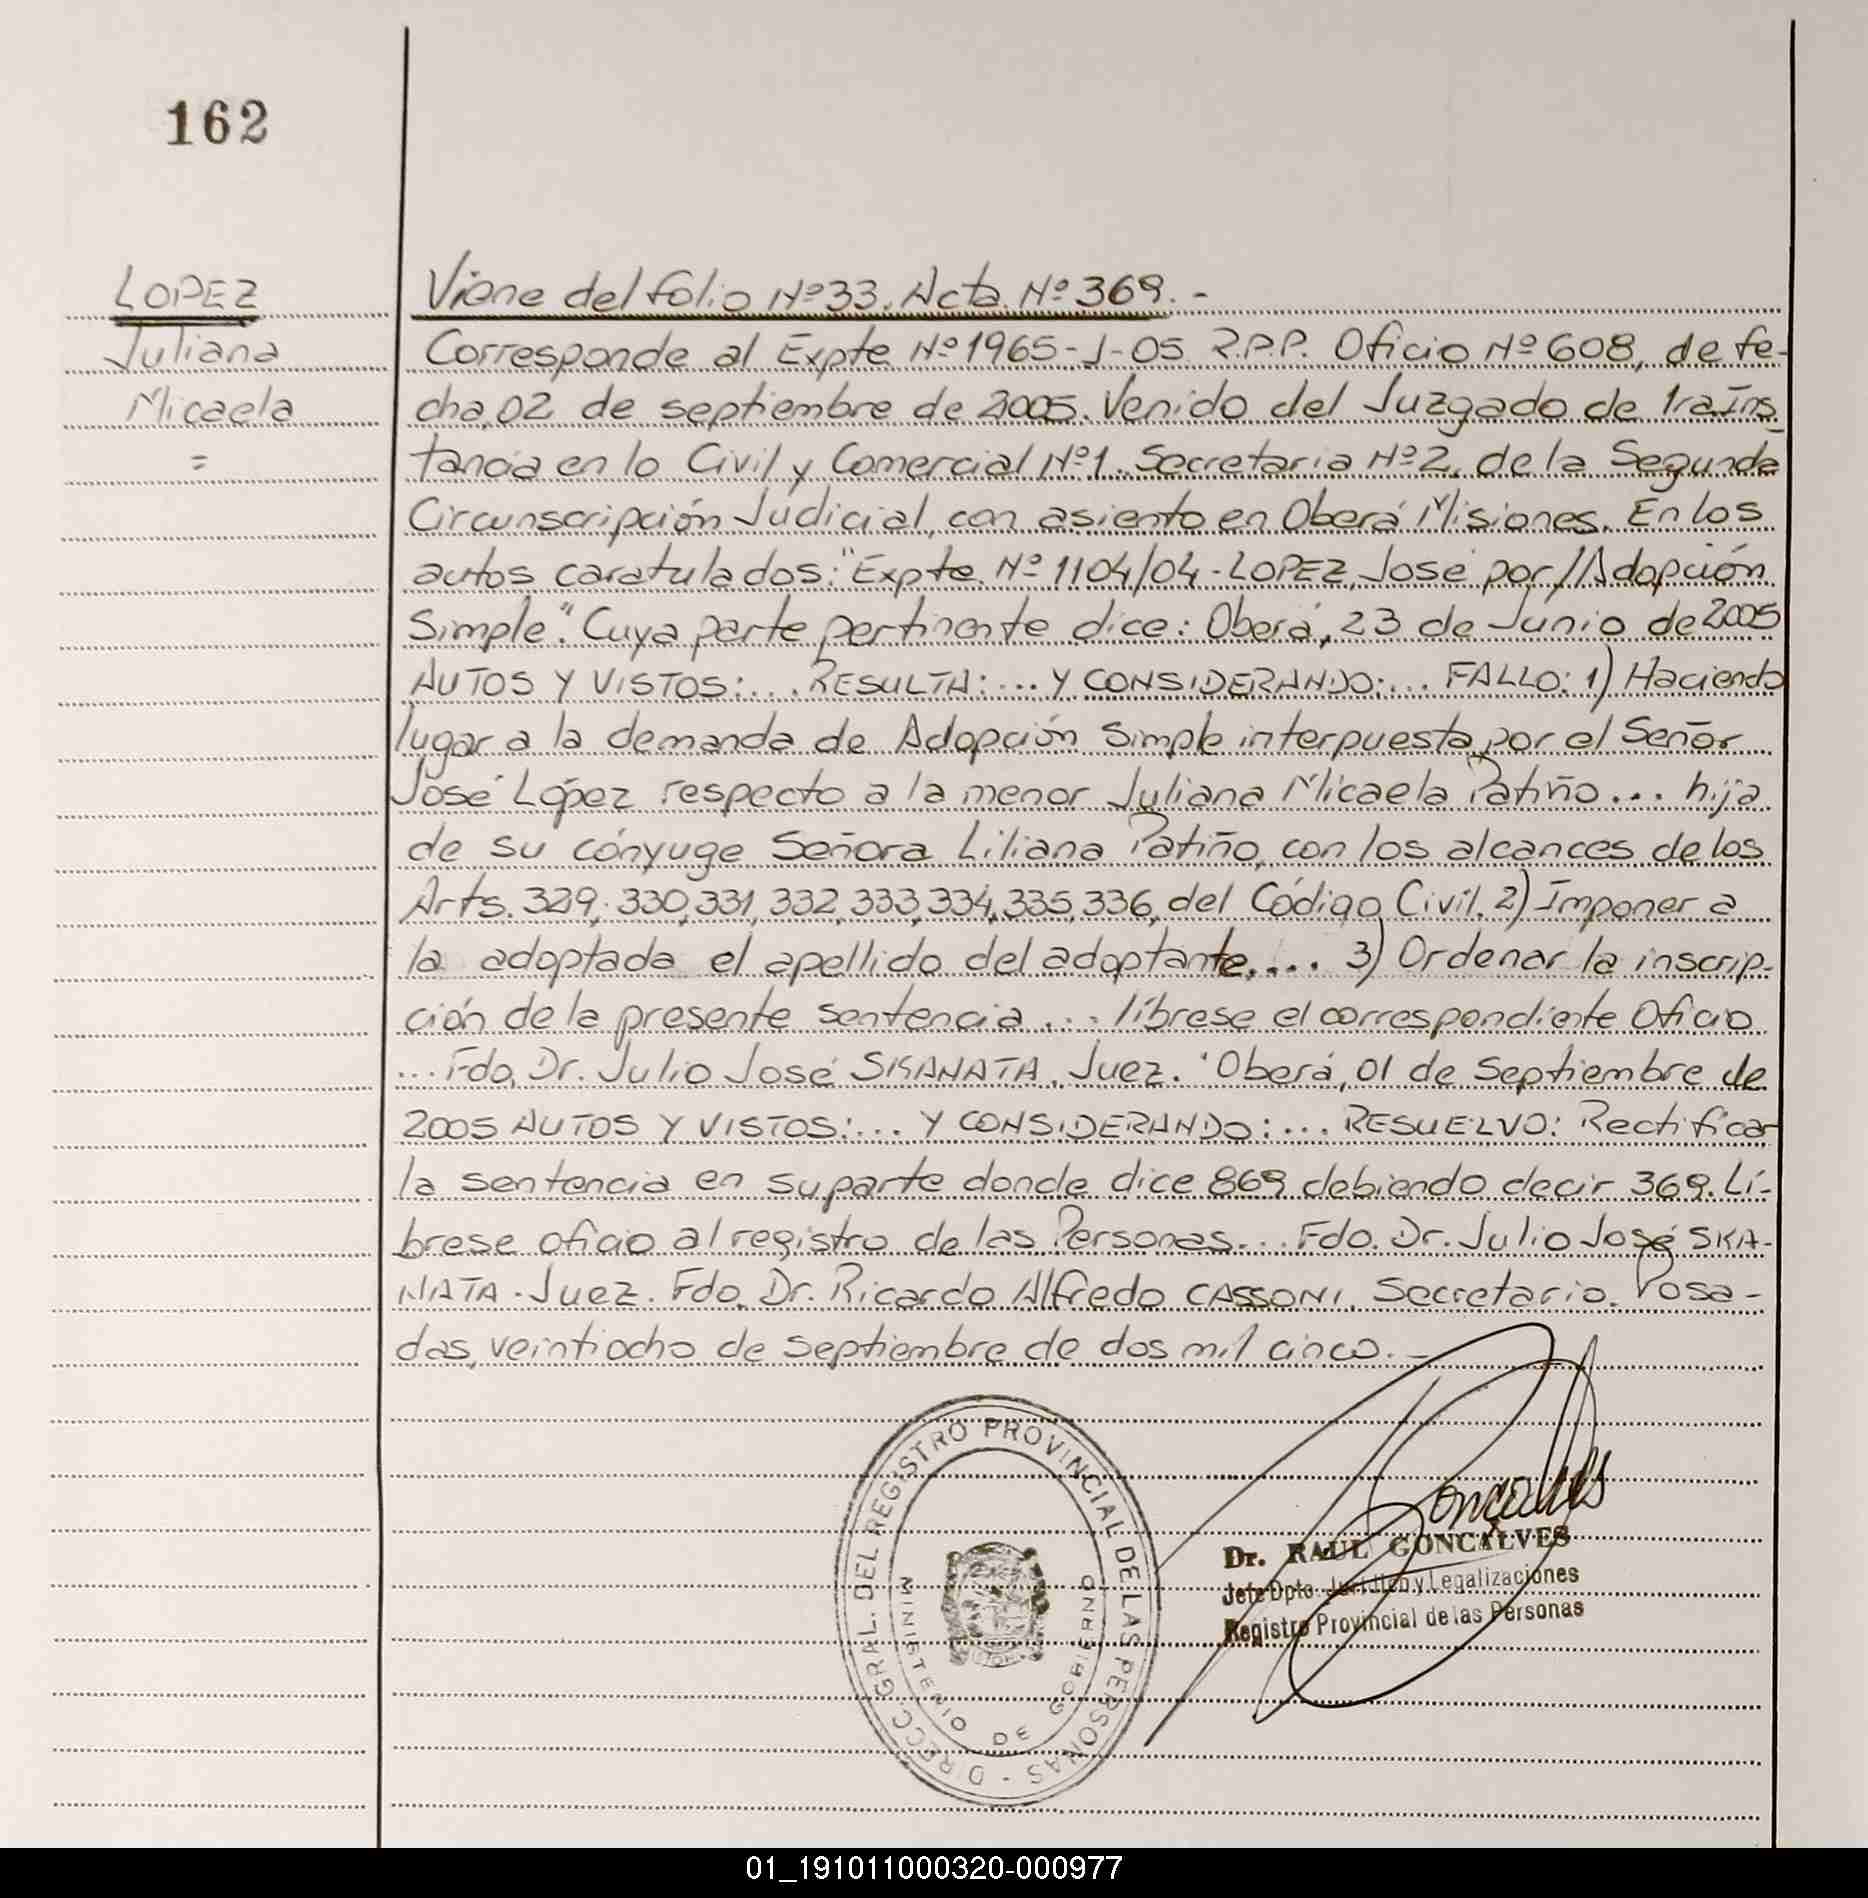 162
LOPEZ
Juliana
Micaela
=
Viene del folio Nº33. Acta Nº 369.-
Corresponde al Expte Nº 1965-J-05 R.P.P. Oficio Nº 608, de fe-
cha, 02 de septiembre de 2005. Venido del Juzgado de 1ra Ins
tancia en lo Civil y Comercial Nº1. Secretaria Nº2, de la Segunda
Circunscripción Judicial, con asiento en Oberá Misiones. En los
autos caratulados: "Expte Nº 1104/04 - LOPEZ, José por//Adopción
Simple". Cuya parte pertinente dice: Oberá, 23 de Junio de 2005
AUTOS Y VISTOS:... RESULTA:... Y CONSIDERANDO:... FALLO: 1) Haciendo
lugar a la demanda de Adopción Simple interpuesta por el Señor
José López respecto a la menor Juliana Micaela Patiño... hija
de su cónyuge Señora Liliana Patiño, con los alcances de los
Arts. 329, 330, 331, 332, 333, 334, 335, 336, del Código Civil. 2) Imponer a
la adoptada el apellido del adoptante,... 3) Ordenar la inscrip-
ción de la presente sentencia... líbrese el correspondiente Oficio
... Fdo. Dr. Julio José SKANATA, Juez. "Oberá, 01 de Septiembre de
2005 AUTOS Y VISTOS:... Y CONSIDERANDO:... RESUELVO: Rectificar
la sentencia en su parte donde dice 869 debiendo decir 369. Lí-
brese oficio al registro de las Personas... Fdo. Dr. Julio José SKA-
NATA. Juez. Fdo. Dr. Ricardo Alfredo CASSONI. Secretario. Posa-
das, veintiocho de septiembre de dos mil cinco.-
DIRECC. GRAL. DEL REGISTRO PROVINCIAL DE LAS PERSONAS -
MINISTERIO DE GOBIERNO
Goncalves
Dr. RAUL GONCALVES
Jefe Dpto. Jurídico y Legalizaciones
Registro Provincial de las Personas
01_191011000320-000977